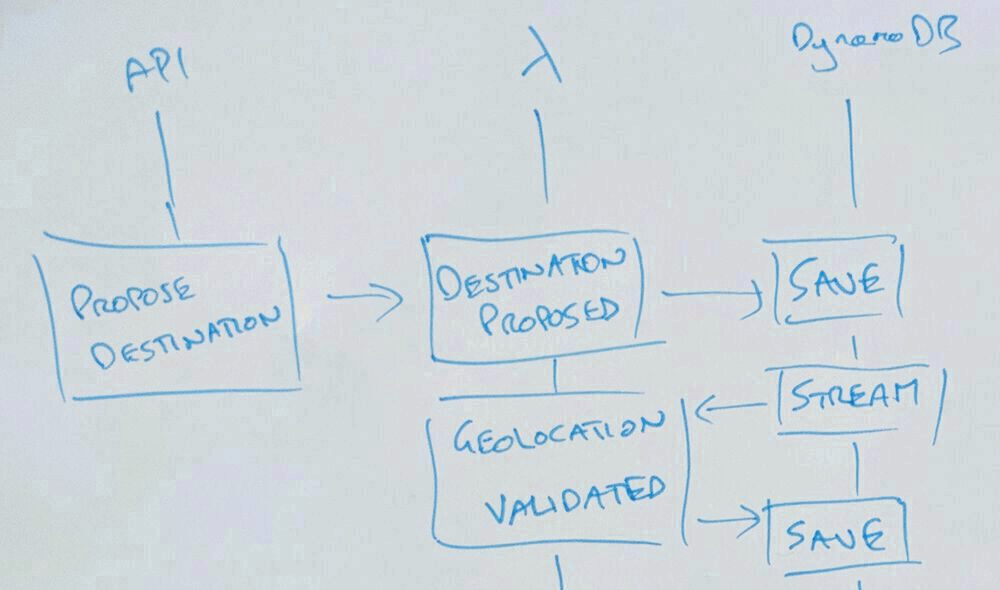 API
λ
DynamoDB
PROPOSE
DESTINATION
DESTINATION
PROPOSED
SAVE
STREAM
GEOLOCATION
VALIDATED
SAVE